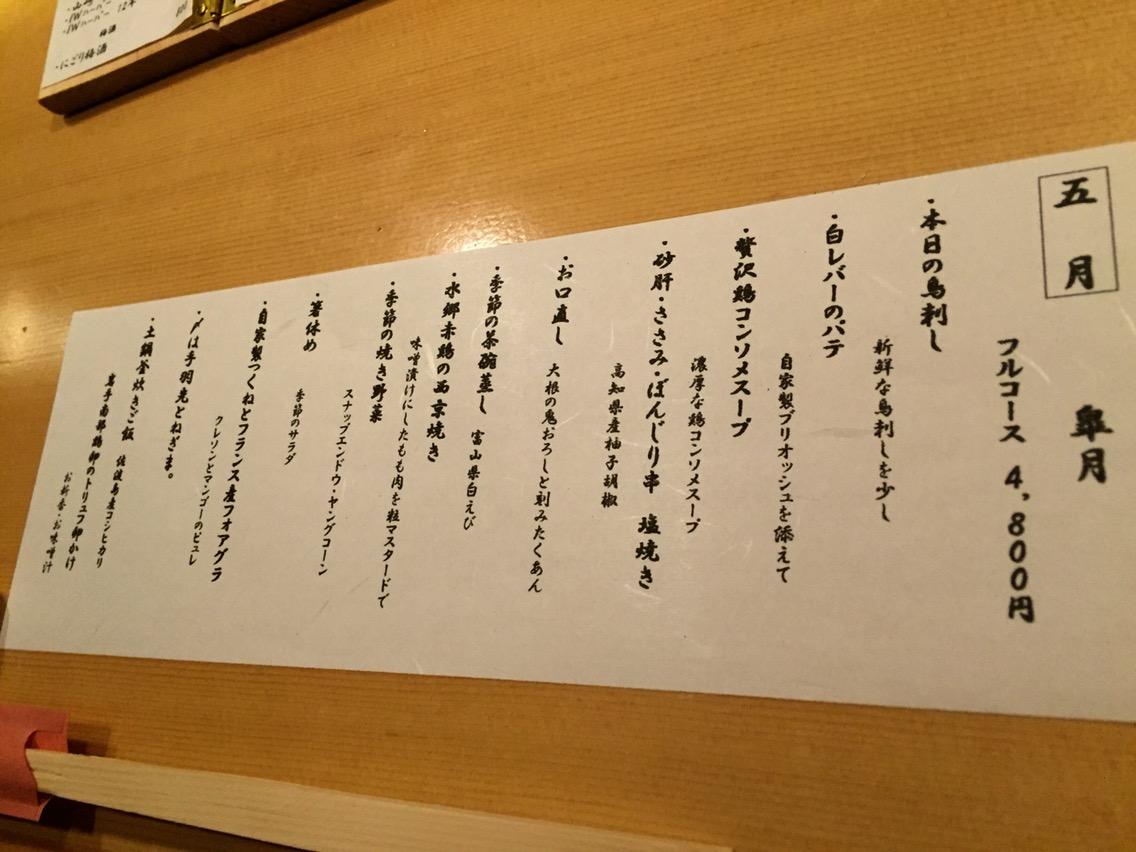 五月
皐月
フルコース 4,800円
・本日の鳥刺し
新鮮な鳥刺しを少し
・白レバーのパテ
自家製ブリオッシュを添えて
・贅沢鶏コンソメスープ
濃厚な鶏コンソメスープ
・砂肝・ささみ・ぼんじり串 塩焼き
高知県産柚子胡椒
・お口直し
大根の鬼おろしと刺みたくあん
・季節の茶碗蒸し 富山県白えび
・水郷赤鶏の西京焼き
味噌漬けにしたもも肉を粒マスタードで
・季節の焼き野菜
スナップエンドウ・ヤングコーン
・箸休め
季節のサラダ
・自家製つくねとフランス産フォアグラ
クレソンとマンゴーのピュレ
・〆は手羽先とねぎま。
・土鍋釜炊きご飯 佐渡島産コシヒカリ
岩手南部鶏卵のトリュフ卵かけ
お新香・お味噌汁
・IWハーパー
・IWハーパー 12年
梅酒
・にごり梅酒